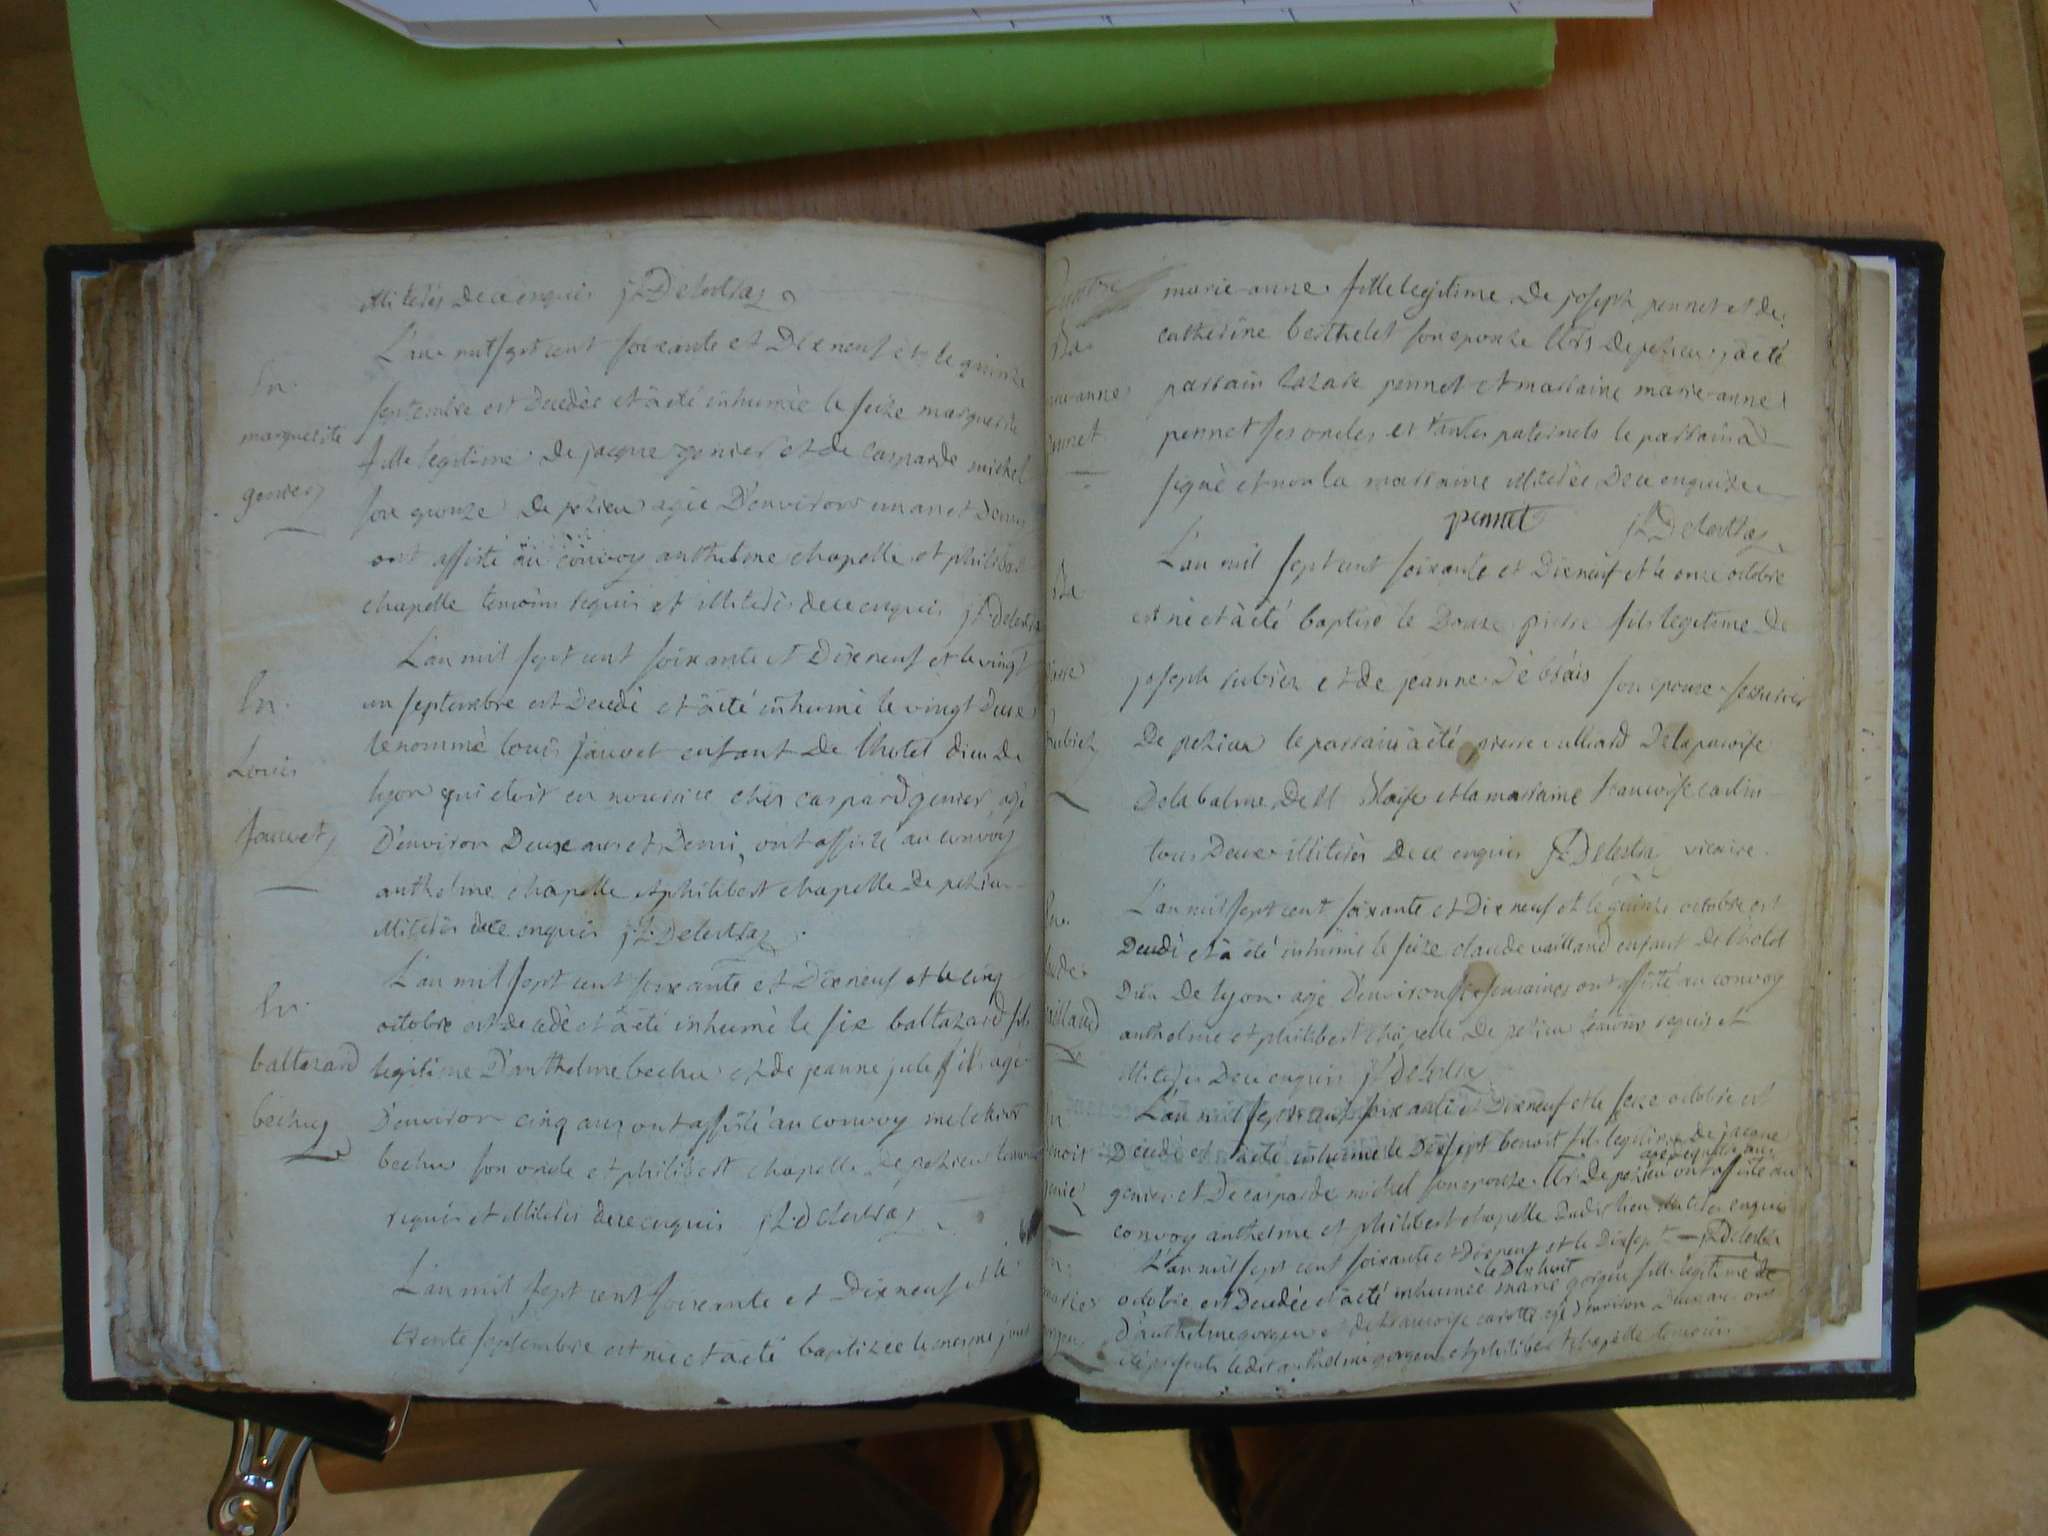 illiterés de ce enquis j. L. Delestraz
En.
marguerite
genier
L'an mil sept cent soixante et dix neuf et le quinze
septembre est decedée et a été inhumée le seize marguerite
fille legitime de jacque genier et de casparde michel
son epouze de pezieu agée d'environ un an et demy
ont assisté au convoy anthelme chapelle et philibert
chapelle temoins requis et illiterés de ce enquis j. L. Delestra
En.
Louis
fauvet
L'an mil sept cent soixante et dix neuf et le vingt
un septembre est decedé et a été inhumé le vingt deux
le nommé louis fauvet enfant de lhotel dieu de
lyon qui etoit en nourrice chés caspard genier agé
d'environ deux ans et demi, ont assisté au convoy
anthelme chapelle et philibert chapelle de pezieu
illiterés de ce enquis j. L. Delestraz
En.
baltazard
bechu
L'an mil sept cent soixante et dix neuf et le cinq
octobre est decedé et a été inhumé le six baltazard fils
legitime d'anthelme bechu et de jeanne agé
d'environ cinq ans ont assisté au convoy melchior
bechu son oncle et philibert chapelle de pezieu temoins
requis et illiterés de ce enquis j. L. Delestraz
L'an mil sept cent soixante et dix neuf et le
trente septembre est née et a été baptizée le mesme jour
Ba
anne
pennet
marie anne fille legitime de joseph pennet et de
catherine berthelet son epouze de pezieu, a été
parrain lazare pennet et marraine marie anne
pennet ses oncles et tantes paternels le parrain a
signé et non la marraine illiterée de ce enquize
pennet j. L. Delestraz
Ba
pierre
rubier
L'an mil sept cent soixante et dix neuf et le onze octobre
est né et a été baptisé le douze pierre fils legitime de
joseph rubier et de jeanne son epouze serrurier
de pezieu le parrain a été pierre de la paroisse
de la balme de st blaise et la marraine francoise
tous deux illiterés de ce enquis j. L. Delestra vicaire
En.
claude
vailland
L'an mil sept cent soixante et dix neuf et le quinze octobre est
decedé et a été inhumé le seize claude vailland enfant de l'hotel
dieu de lyon agé d'environ six semaines ont assisté au convoy
anthelme et philibert chapelle de pezieu temoins requis et
illiterés de ce enquis j. L. Delestra
En
benoit
genier
L'an mil sept cent soixante et dix neuf et le seize octobre est
decedé et a été inhumé le dix sept benoit fils legitime de jacque
genier et de casparde michel son epouze de pezieu ont assisté au
convoy anthelme et philibert chapelle dudit lieu illiterés enquis
En.
marie
gorgeu
L'an mil sept cent soixante et dix neuf et le dix sept j. L. Delestra
le dix huit
octobre est decedée et a été inhumée marie gorgeu fille legitime de
d'anthelme gorgeu et de francoise carotte agé d'environ deux ans ont
été presents ledit anthelme gorgeu et philibert chapelle temoins